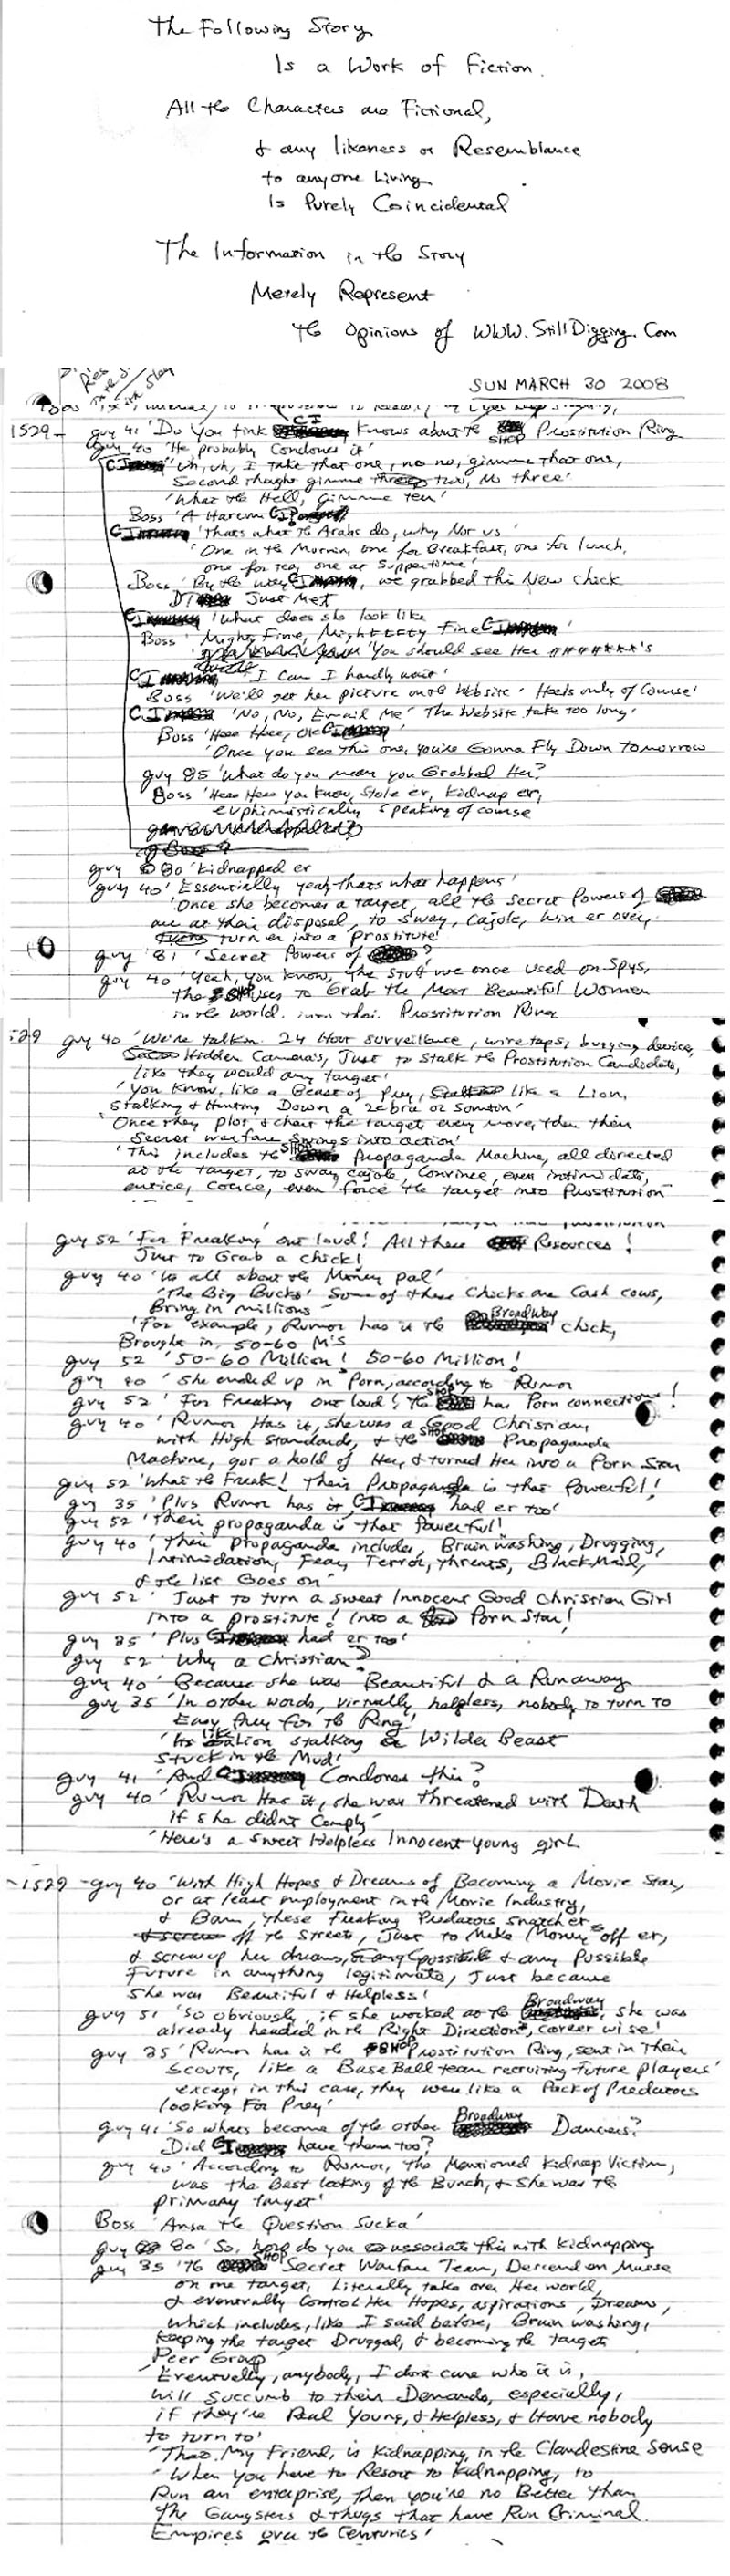 The Following Story
Is a Work of Fiction.
All the Characters are Fictional,
& any likeness or Resemblance
to anyone Living
Is Purely Coincidental
The Information in the Story
Merely Represent
the Opinions of WWW.StillDigging.Com
SUN MARCH 30 2008
1529- guy 41 'Do You tink CI Knows about the SHOP Prostitution Ring
guy 40 'He probably Condones it'
CI 'Uh, uh, I take that one, no no, gimme that one,
Second thought gimme two, no three'
'What the Hell, Gimme Ten'
Boss 'A Harem CI
CI 'Thats what the Arabs do, why Not us'
'One in the Morning, one for Breakfast, one for lunch,
one for tea, one at Suppertime'
Boss 'By the way CI, we grabbed this New chick
DI Just Met
CI 'What does she look like
Boss 'Mighty Fine, MightEEty Fine CI'
'You should see Her #######'s
CI 'I Can I hardly wait'
Boss 'We'll get her picture on the Website - Heels only of Course'
CI 'No, No, Email Me' The Website take too long'
Boss 'Hee Hee, OK CI'
'Once you see this one, you're Gonna Fly Down Tomorrow
guy 85 'What do you mean you Grabbed Her?
Boss 'Hee Hee you know, Stole er, kidnap er,
euphimistically speaking of course
guy 80 'kidnapped er
guy 40 'Essentially yeah, thats what happens'
'Once she becomes a target, all the Secret Powers of
are at their disposal, to sway, cajole, win er over,
turn er into a Prostitute'
guy 81 'Secret Powers of ?
guy 40 'Yeah, you know, The Stuff we once used on Spys,
the SHOP uses to Grab the Most Beautiful Women
in the world, into their Prostitution Ring
1529 guy 40 'We're talkin 24 Hour surveillance, wire taps, bugging device,
Hidden Camera's, Just to Stalk the Prostitution Candidate,
like they would any target'
'You know, like a Beast of Prey, like a Lion,
Stalking & Hunting Down a Zebra or Somtin'
'Once they plot & chart the target every move, then their
Secret warfare Springs into action'
'This includes the SHOP Propaganda Machine, all directed
at the target, to sway, cajole, Convince, even intimidate,
entice, Coerce, even force the target into Prostitution
guy 52 'For Freaking out loud! All these Resources!
Just to Grab a chick!
guy 40 'Its all about the Money Pal'
'The Big Bucks' Some of these Chicks are Cash cows,
Bring in millions'
'For example, Rumor has it the Broadway chick,
Brought in, 50-60 M'S
guy 52 '50-60 Million! 50-60 Million!
guy 40 'She ended up in Porn, according to Rumor
guy 52 'For Freaking out loud! the SHOP has Porn connections!
guy 40 'Rumor Has it, she was a Good Christian,
with High Standards, & the SHOP Propaganda
Machine, got a hold of Her, & turned Her into a Porn Star
guy 52 'What the Freak! Their Propaganda is that Powerful!
guy 35 'Plus Rumor has it, CI had er too'
guy 52 'Their propaganda is that Powerful!
guy 40 'Their Propaganda include, Brain washing, Drugging,
Intimidation, Fear, Terror, threats, BlackMail,
& the list Goes on'
guy 52 'Just to turn a sweat Innocent Good Christian Girl
into a prostitute! Into a Porn Star!
guy 35 'Plus CI had er too'
guy 52 'Why a Christian?
guy 40 'Because she was Beautiful & a Runaway
guy 35 'In order words, virtually, helpless, nobody to turn to
Easy Prey for the Ring'
'Its like a Lion stalking a Wilder Beast
Stuck in the Mud'
guy 41 'And CI Condones this?
guy 40 'Rumor Has it, she was threatened with Death
if she didnt Comply'
'Here's a Sweet Helpless Innocent young girl
1529 - guy 40 'With High Hopes & Dreams of Becoming a Movie Star,
or at least employment in the Movie Industry,
& Bam, these Freaking Predators snatch er
off the Streets, Just to Make Money off er,
& screw up her dreams, & any Possible
Future in anything legitimate, Just because
She was Beautiful & Helpless!
guy 51 'So obviously, if she worked at the Broadway, she was
already headed in the Right Direction, career wise!
guy 35 'Rumor has it the SHOP Prostitution Ring, sent in Their
Scouts, like a BaseBall team recruiting Future players'
'except in this case, they were like a Pack of Predators
looking For Prey'
guy 41 'So whats become of the other Broadway Dancers?
Did CI have them too?
guy 40 'According to Rumor, the Mentioned kidnap Victim,
was the Best looking of the Bunch, & She was the
primary target'
Boss 'Ansa the Question Sucka'
guy 80 'So, how do you associate this with kidnapping
guy 35 'The SHOP Secret Warfare Team, Descend on Masse
on one target, Literally take over Her world,
& eventually Control Her Hopes, aspirations, Dreams,
which includes, like I said before, Brain washing,
keeping the target Drugged, & becoming the target
Peer Group'
'Eventually, anybody, I dont care who it is,
will succumb to their Demands, especially,
if they're Real Young, & Helpless, & Have nobody
to turn to'
'That My Friend, is Kidnapping, in the Clandestine Sense
'When you have to Resort to Kidnapping, to
Run an enterprise, then you're no Better than
the Gangsters & Thugs that have Run Criminal
Empires over the Centuries'